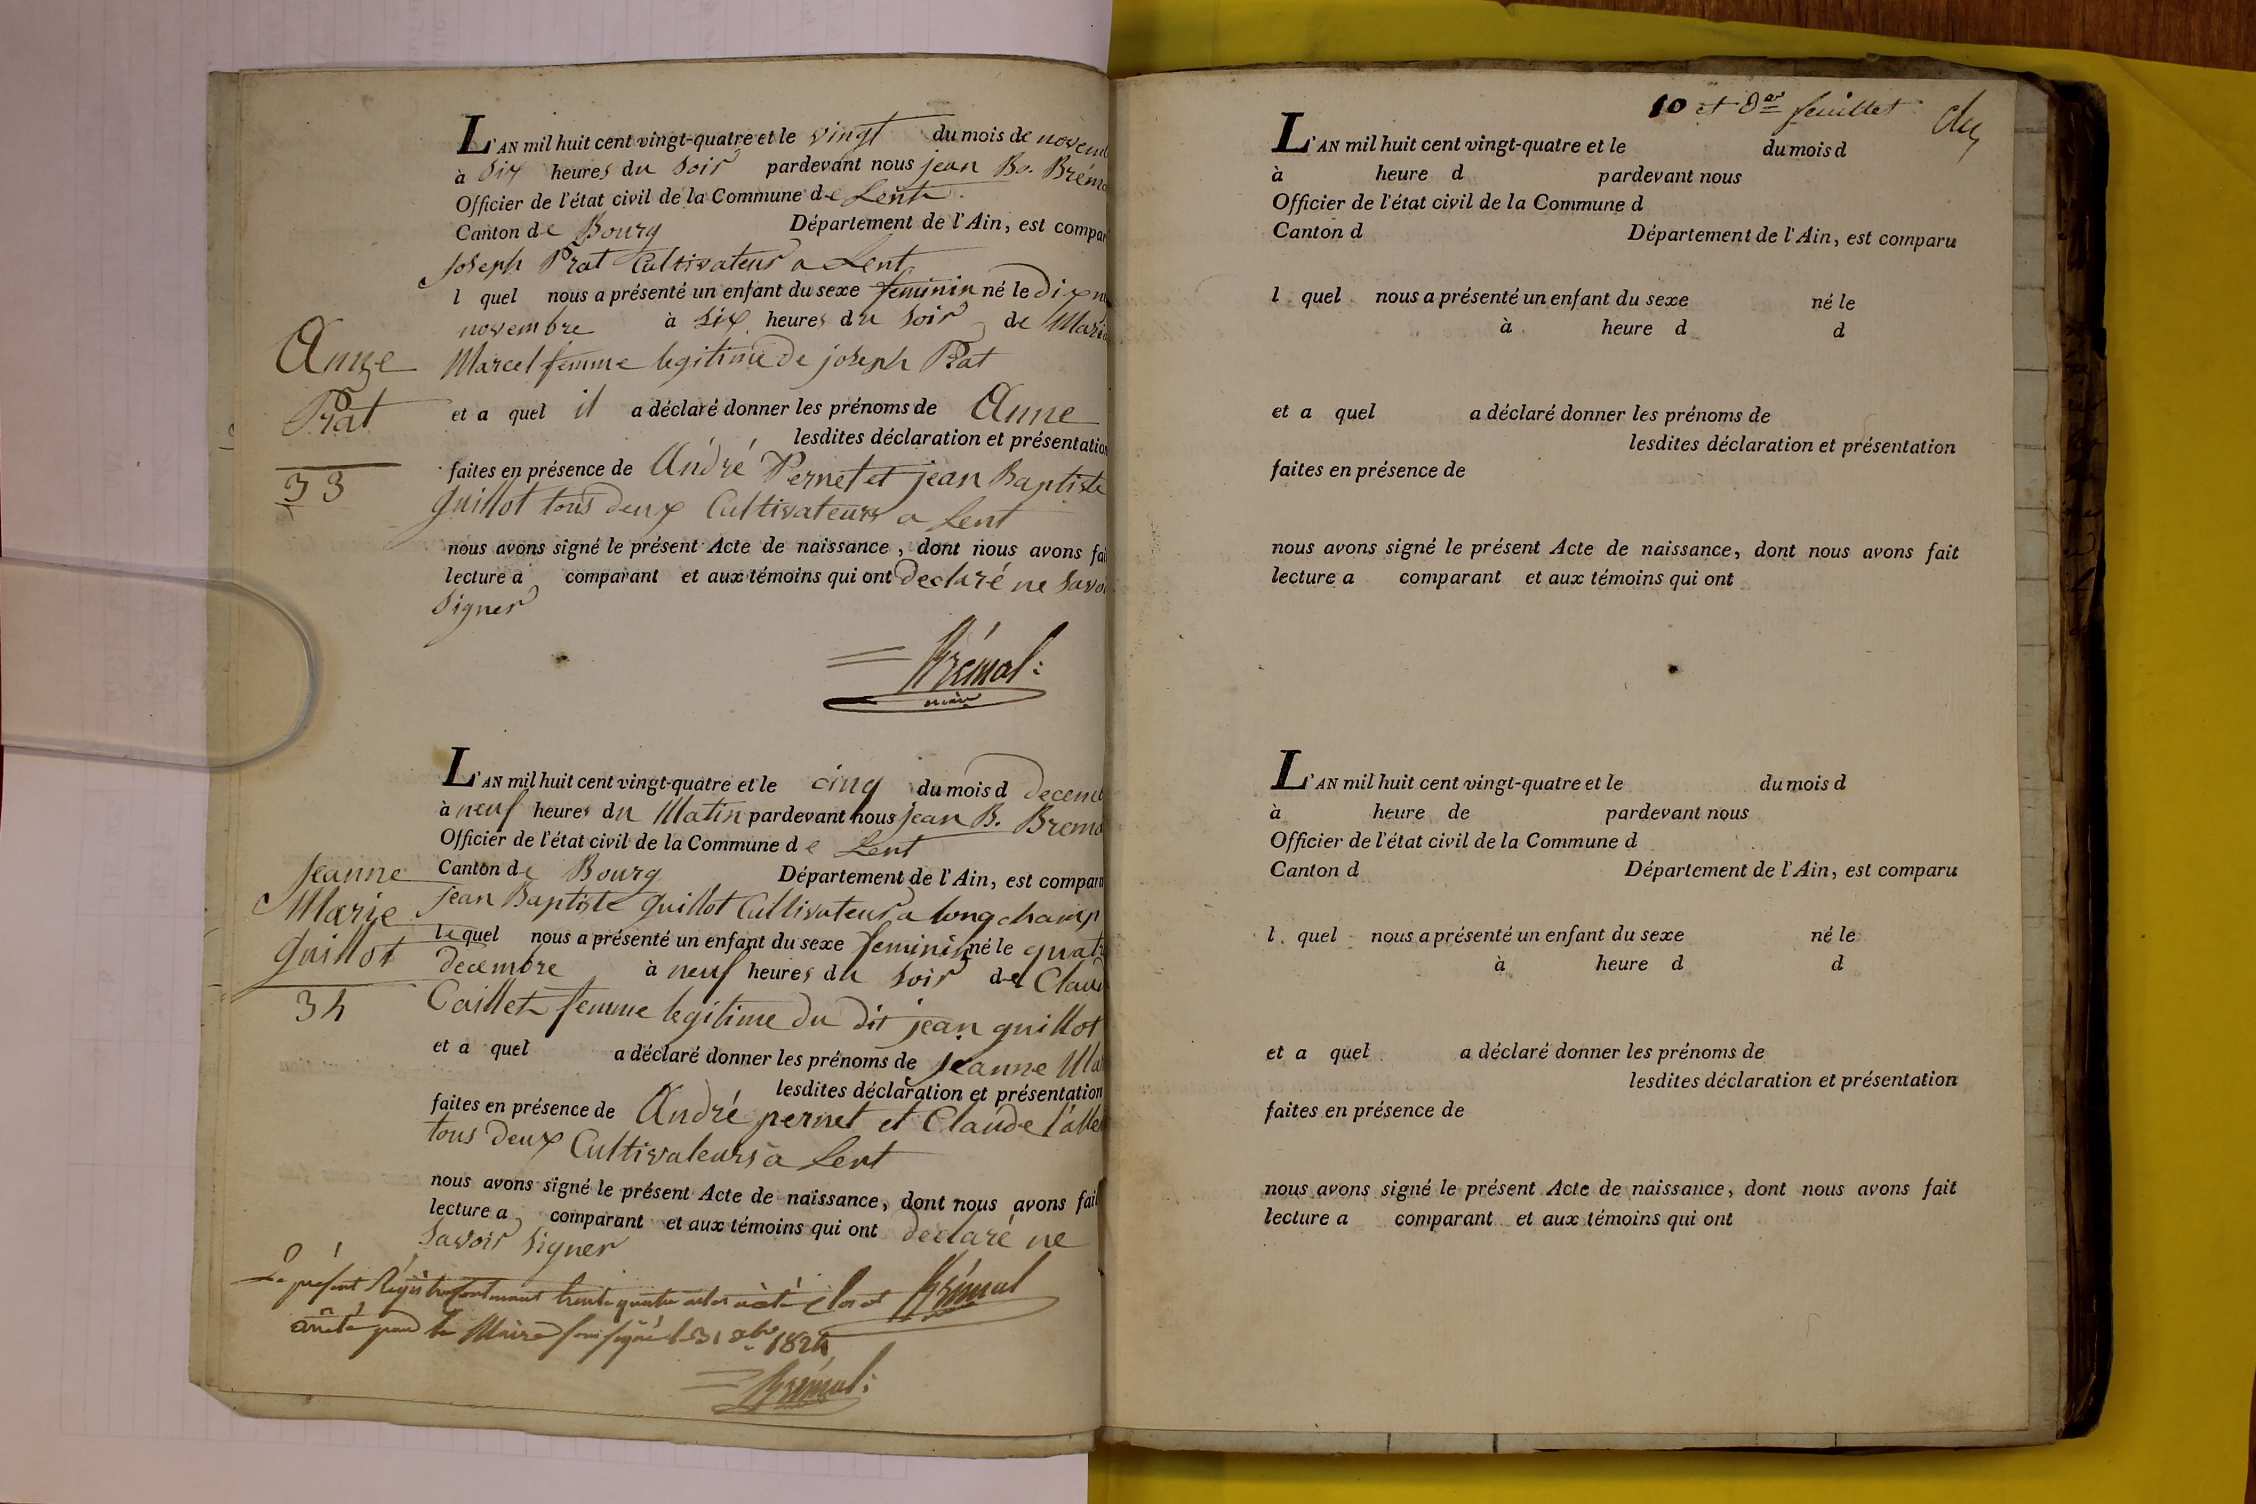 L'AN mil huit cent vingt-quatre et le vingt du mois de novemb
à six heures du soir pardevant nous jean B. Brémo
Officier de l'état civil de la Commune de Lent
Canton de Bourg Département de l'Ain, est compar
Joseph Prat Cultivateur a Lent
l quel nous a présenté un enfant du sexe feminin né le dix n
novembre à six heures du soir de Marie
Marcel femme legitime de joseph Prat
et a quel il a déclaré donner les prénoms de Anne
lesdites déclaration et présentation
faites en présence de André Pernet et jean Baptiste
guillot tous deux Cultivateurs a Lent
nous avons signé le présent Acte de naissance, dont nous avons fai
lecture a comparant et aux témoins qui ont declaré ne savoi
signer
Brémal
maire
Anne
Prat
33
L'AN mil huit cent vingt-quatre et le cinq du mois d decemb
à neuf heures du Matin pardevant nous jean B. Bremo
Officier de l'état civil de la Commune de Lent
Canton de Bourg Département de l'Ain, est comparu
jean Baptiste guillot Cultivateur a longchamp
le quel nous a présenté un enfant du sexe feminin né le quat
decembre à neuf heures du soir de Claud
Caillet femme legitime du dit jean guillot
et a quel a déclaré donner les prénoms de jeanne Ma
lesdites déclaration et présentation
faites en présence de André pernet et Claude
tous deux Cultivateurs a Lent
nous avons signé le présent Acte de naissance, dont nous avons fait
lecture a comparant et aux témoins qui ont declaré ne
savoir signer
Jeanne
Marie
guillot
34
Le présent Régistre contenant trente quatre actes a été clos et Brémal
arrêté par le Maire soussigné le 31 xbre 1824
Brémal
10 et der feuillet
L'AN mil huit cent vingt-quatre et le du mois d
à heure d pardevant nous
Officier de l'état civil de la Commune d
Canton d Département de l'Ain, est comparu
l quel nous a présenté un enfant du sexe né le
à heure d d
et a quel a déclaré donner les prénoms de
lesdites déclaration et présentation
faites en présence de
nous avons signé le présent Acte de naissance, dont nous avons fait
lecture a comparant et aux témoins qui ont
L'AN mil huit cent vingt-quatre et le du mois d
à heure de pardevant nous
Officier de l'état civil de la Commune d
Canton d Département de l'Ain, est comparu
l quel nous a présenté un enfant du sexe né le
à heure d d
et a quel a déclaré donner les prénoms de
lesdites déclaration et présentation
faites en présence de
nous avons signé le présent Acte de naissance, dont nous avons fait
lecture a comparant et aux témoins qui ont